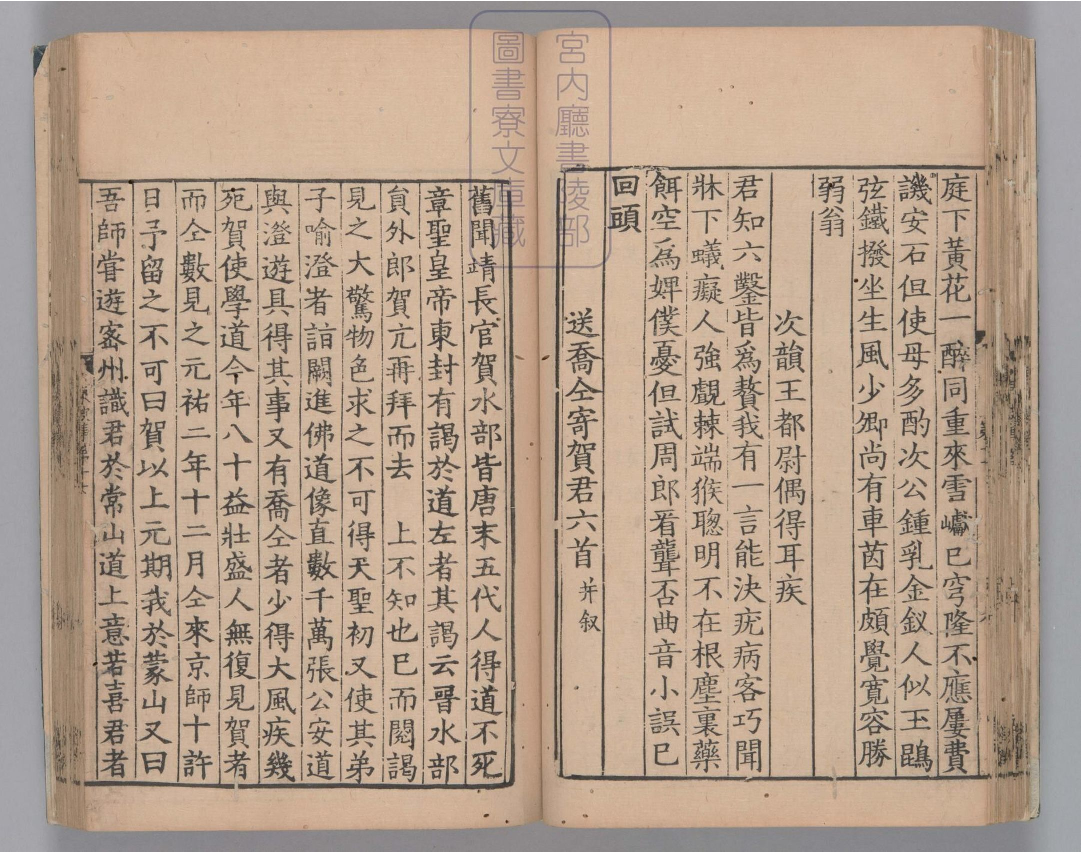 庭下黃花一醉同重來雪巘已穹隆不應屢費
譏安石但使毋多酌次公鍾乳金釵人似玉鵾
弦鐵撥坐生風少卿尚有車茵在頗覺寬容勝
弱翁
次韻王都尉偶得耳疾
君知六鑿皆爲贅我有一言能決疣病客巧聞
牀下蟻癡人強覷棘端猴聰明不在根塵裏藥
餌空爲婢僕憂但試周郎看聾否曲音小誤已
回頭
送喬仝寄賀君六首 并叙
舊聞靖長官賀水部皆唐末五代人得道不死
章聖皇帝東封有謁於道左者其謁云晉水部
貟外郎賀亢再拜而去 上不知也已而閱謁
見之大驚物色求之不可得天聖初又使其弟
子喻澄者詣闕進佛道像直數千萬張公安道
與澄遊具得其事又有喬仝者少得大風疾幾
死賀使學道今年八十益壯盛人無復見賀者
而仝數見之元祐二年十二月仝來京師十許
日予留之不可曰賀以上元期我於蒙山又曰
吾師甞遊宻州識君於常山道上意若喜君者
宮內廳書陵部
圖書寮文庫藏